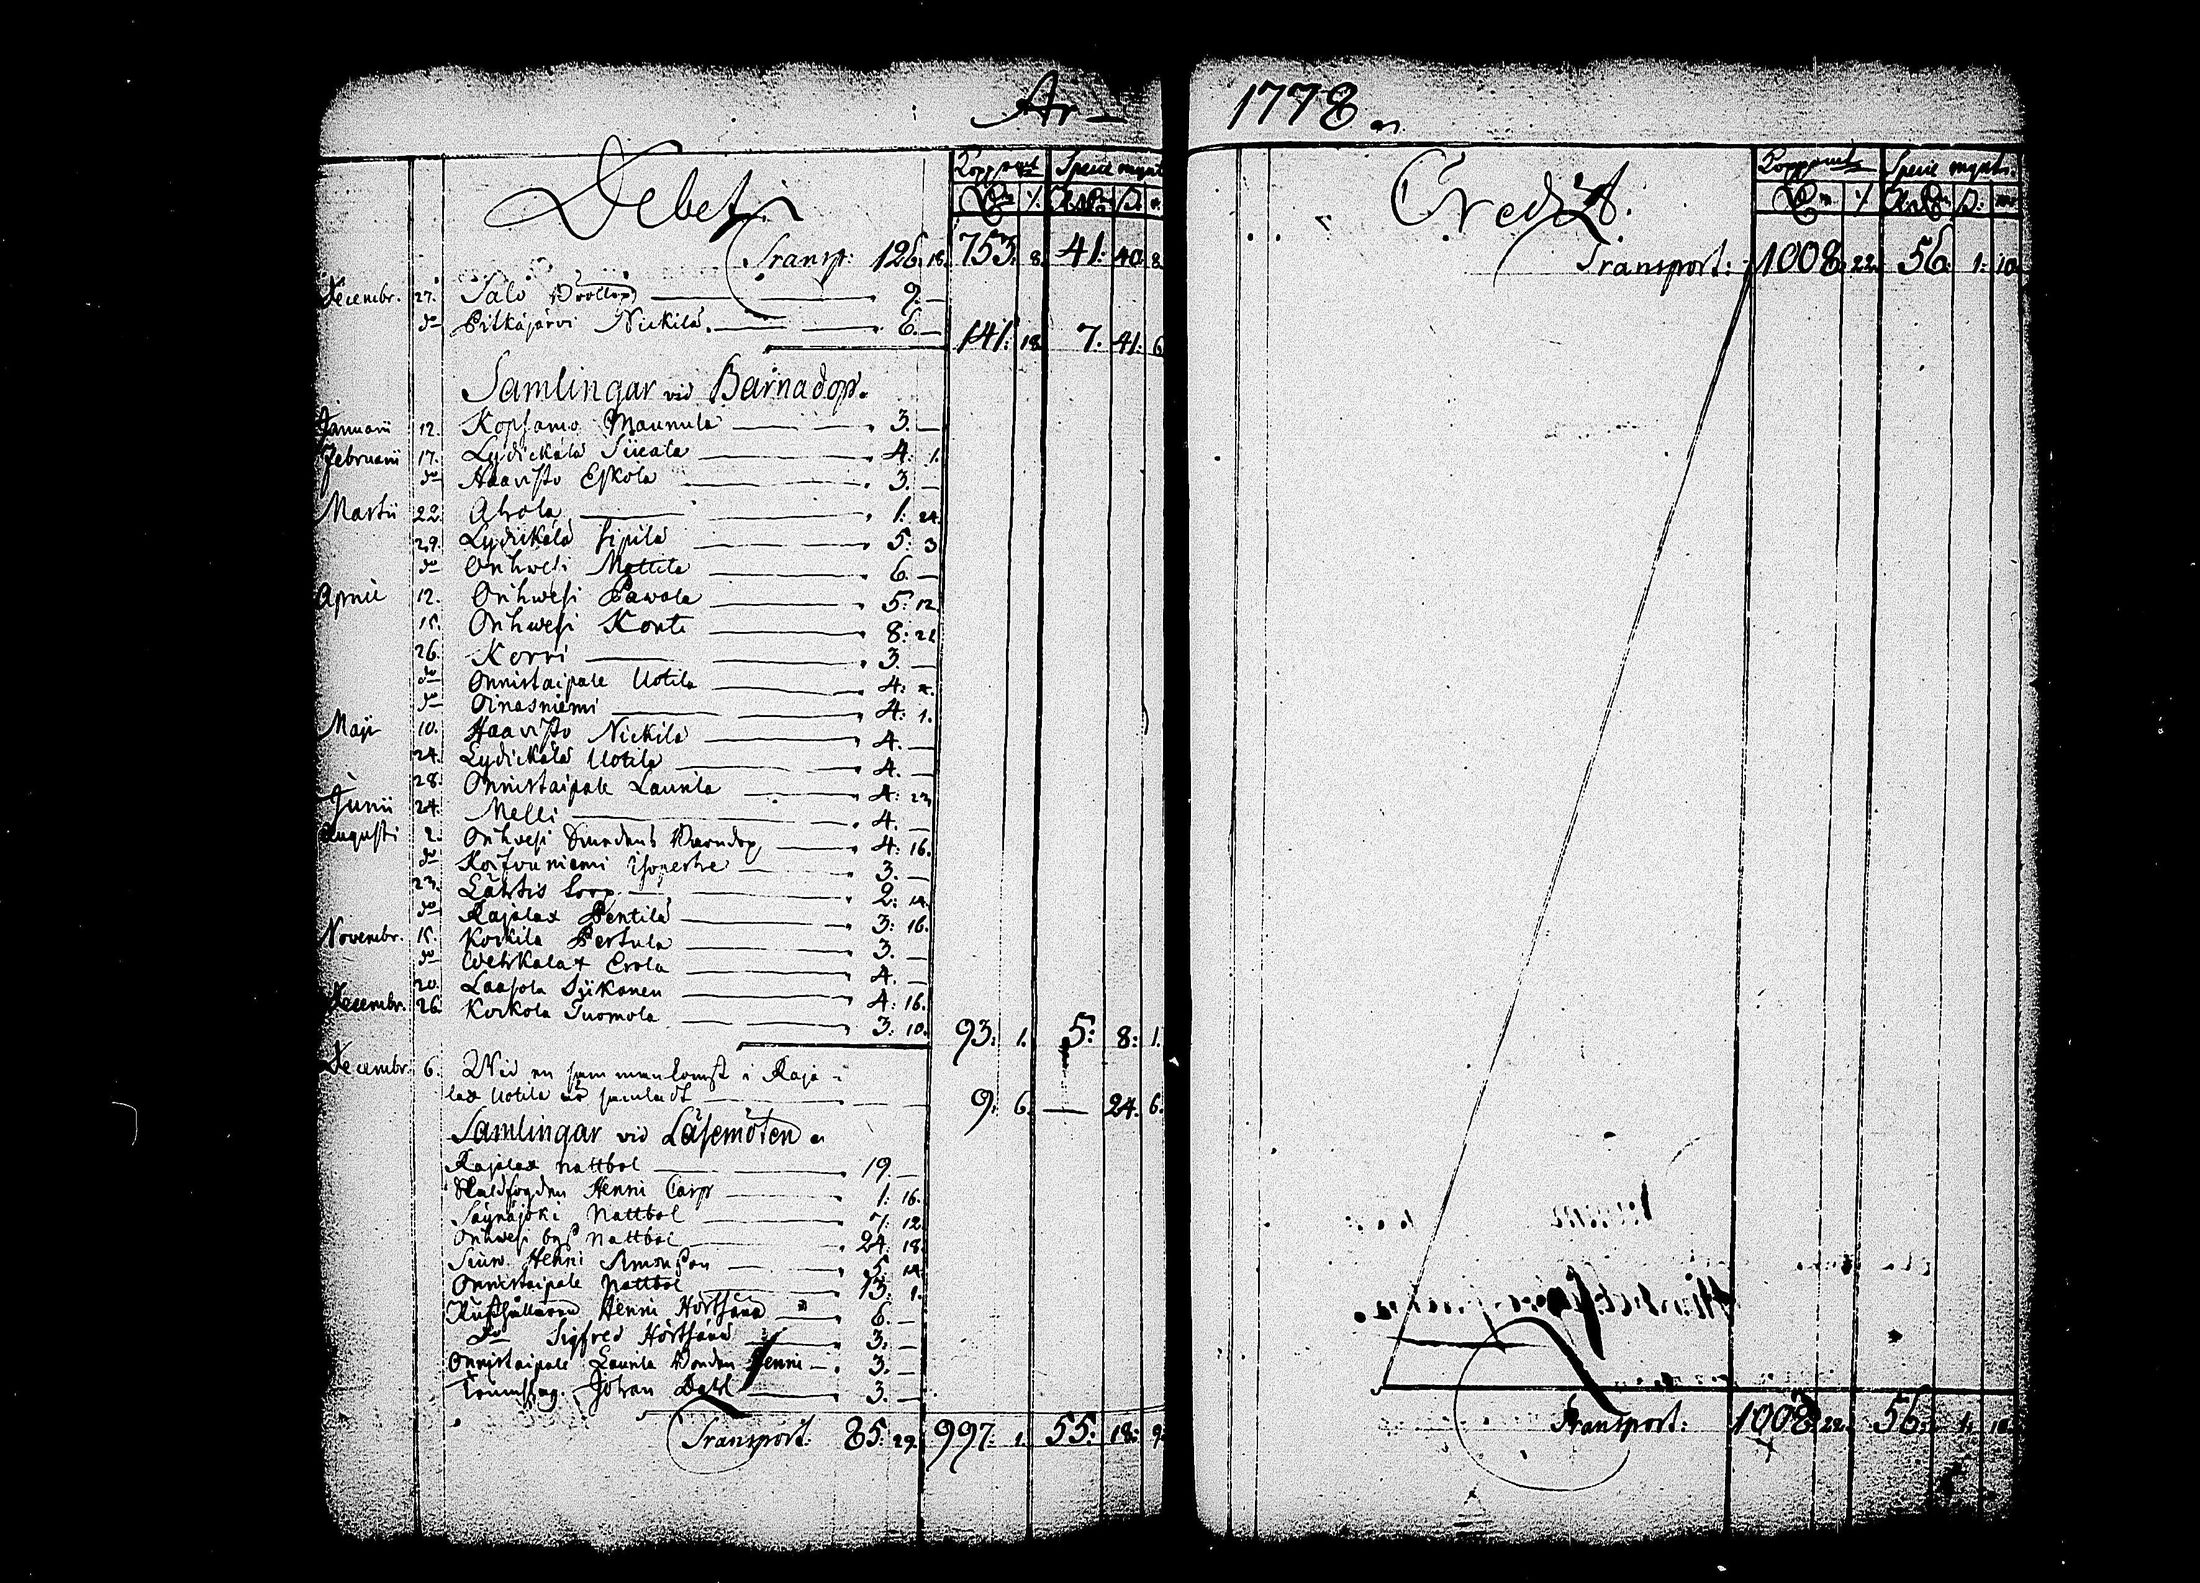 År — 1778.
Debet. Kopp. mt Specie mynt
Transp: 126. 18. 753. 8. 41: 40. 8.
Decembr. 27. Salo — 9. —
do Pitkäjärvi Nickilä. — 6. — 141: 18. 7. 41: 6.
Samlingar vid Barnadop.
Januarii 12. Kopsamo Maunula — 3. —
Februarii 17. Lydickälä Siicala — 4. 1.
do Haavisto Eskola — 3. —
Martii 22. Ahola — 1: 24.
29. Lydickälä Sipilä — 5: 3
do Orihwesi Mattila — 6. —
Aprill 12. Orihwesi Pawola — 5: 12.
15. Orihwesi Konti — 8: 22
26. Korri — 3. —
do Onnistaipale Uotila — 4:
do Oinasniemi — 4: 1.
Maji 10. Haavisto Nickilä — 4. —
24. Lydickälä Uotila — 4. —
28. Onnistaipale Laurila — 4: 23
Junii 24. Melli — 4. —
Augusti 2. Orihvesi — 4: 16.
do Koivuniemi — 3. —
23. Lähtis — 2:
do Rajalax Pentilä — 3: 16.
Novembr. 15. Korkila Pertula — 3. —
do Wehkalax Erola — 4. —
20. Laasola Siikanen — 4: 16.
Decembr. 26. Korkola Tuomola — 3: 10. 93: 1. 5: 8: 1.
Decembr. 6. Wid en sammankomst i Raja-
lax Uotila är samladt — 9: 6. — 24. 6.
Samlingar vid Läsemöten
Rajalax nattbol — 19. —
Henni Carp — 1: 16.
Säynäjoki Nattbol — 7: 12.
Orihwesi byß nattbol — 24: 18.
Henni Simonßon — 5:
Onnistaipale Nattbol — 13: 1.
Rusthållaren Henni Hörtsänä — 6. —
do Sigfred Hörtsänä — 3. —
Onnistaipale Laurila Bonden Henni — 3. —
Johan Dahl — 3. —
Transport: 85: 29. 997: 1. 55: 18: 9.
Credit. Kopp. mt Specie mynt.
Transport: 1008. 22. 56. 1: 10.
Transport: 1008. 22. 56. 1. 10.